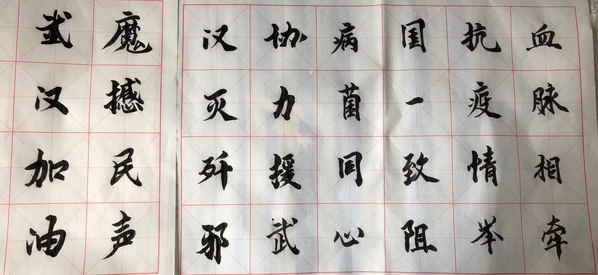 血脉相牵
抗疫情举
国一致阻
病菌同心
协力援武
汉灭歼邪
魔撼民声
武汉加油